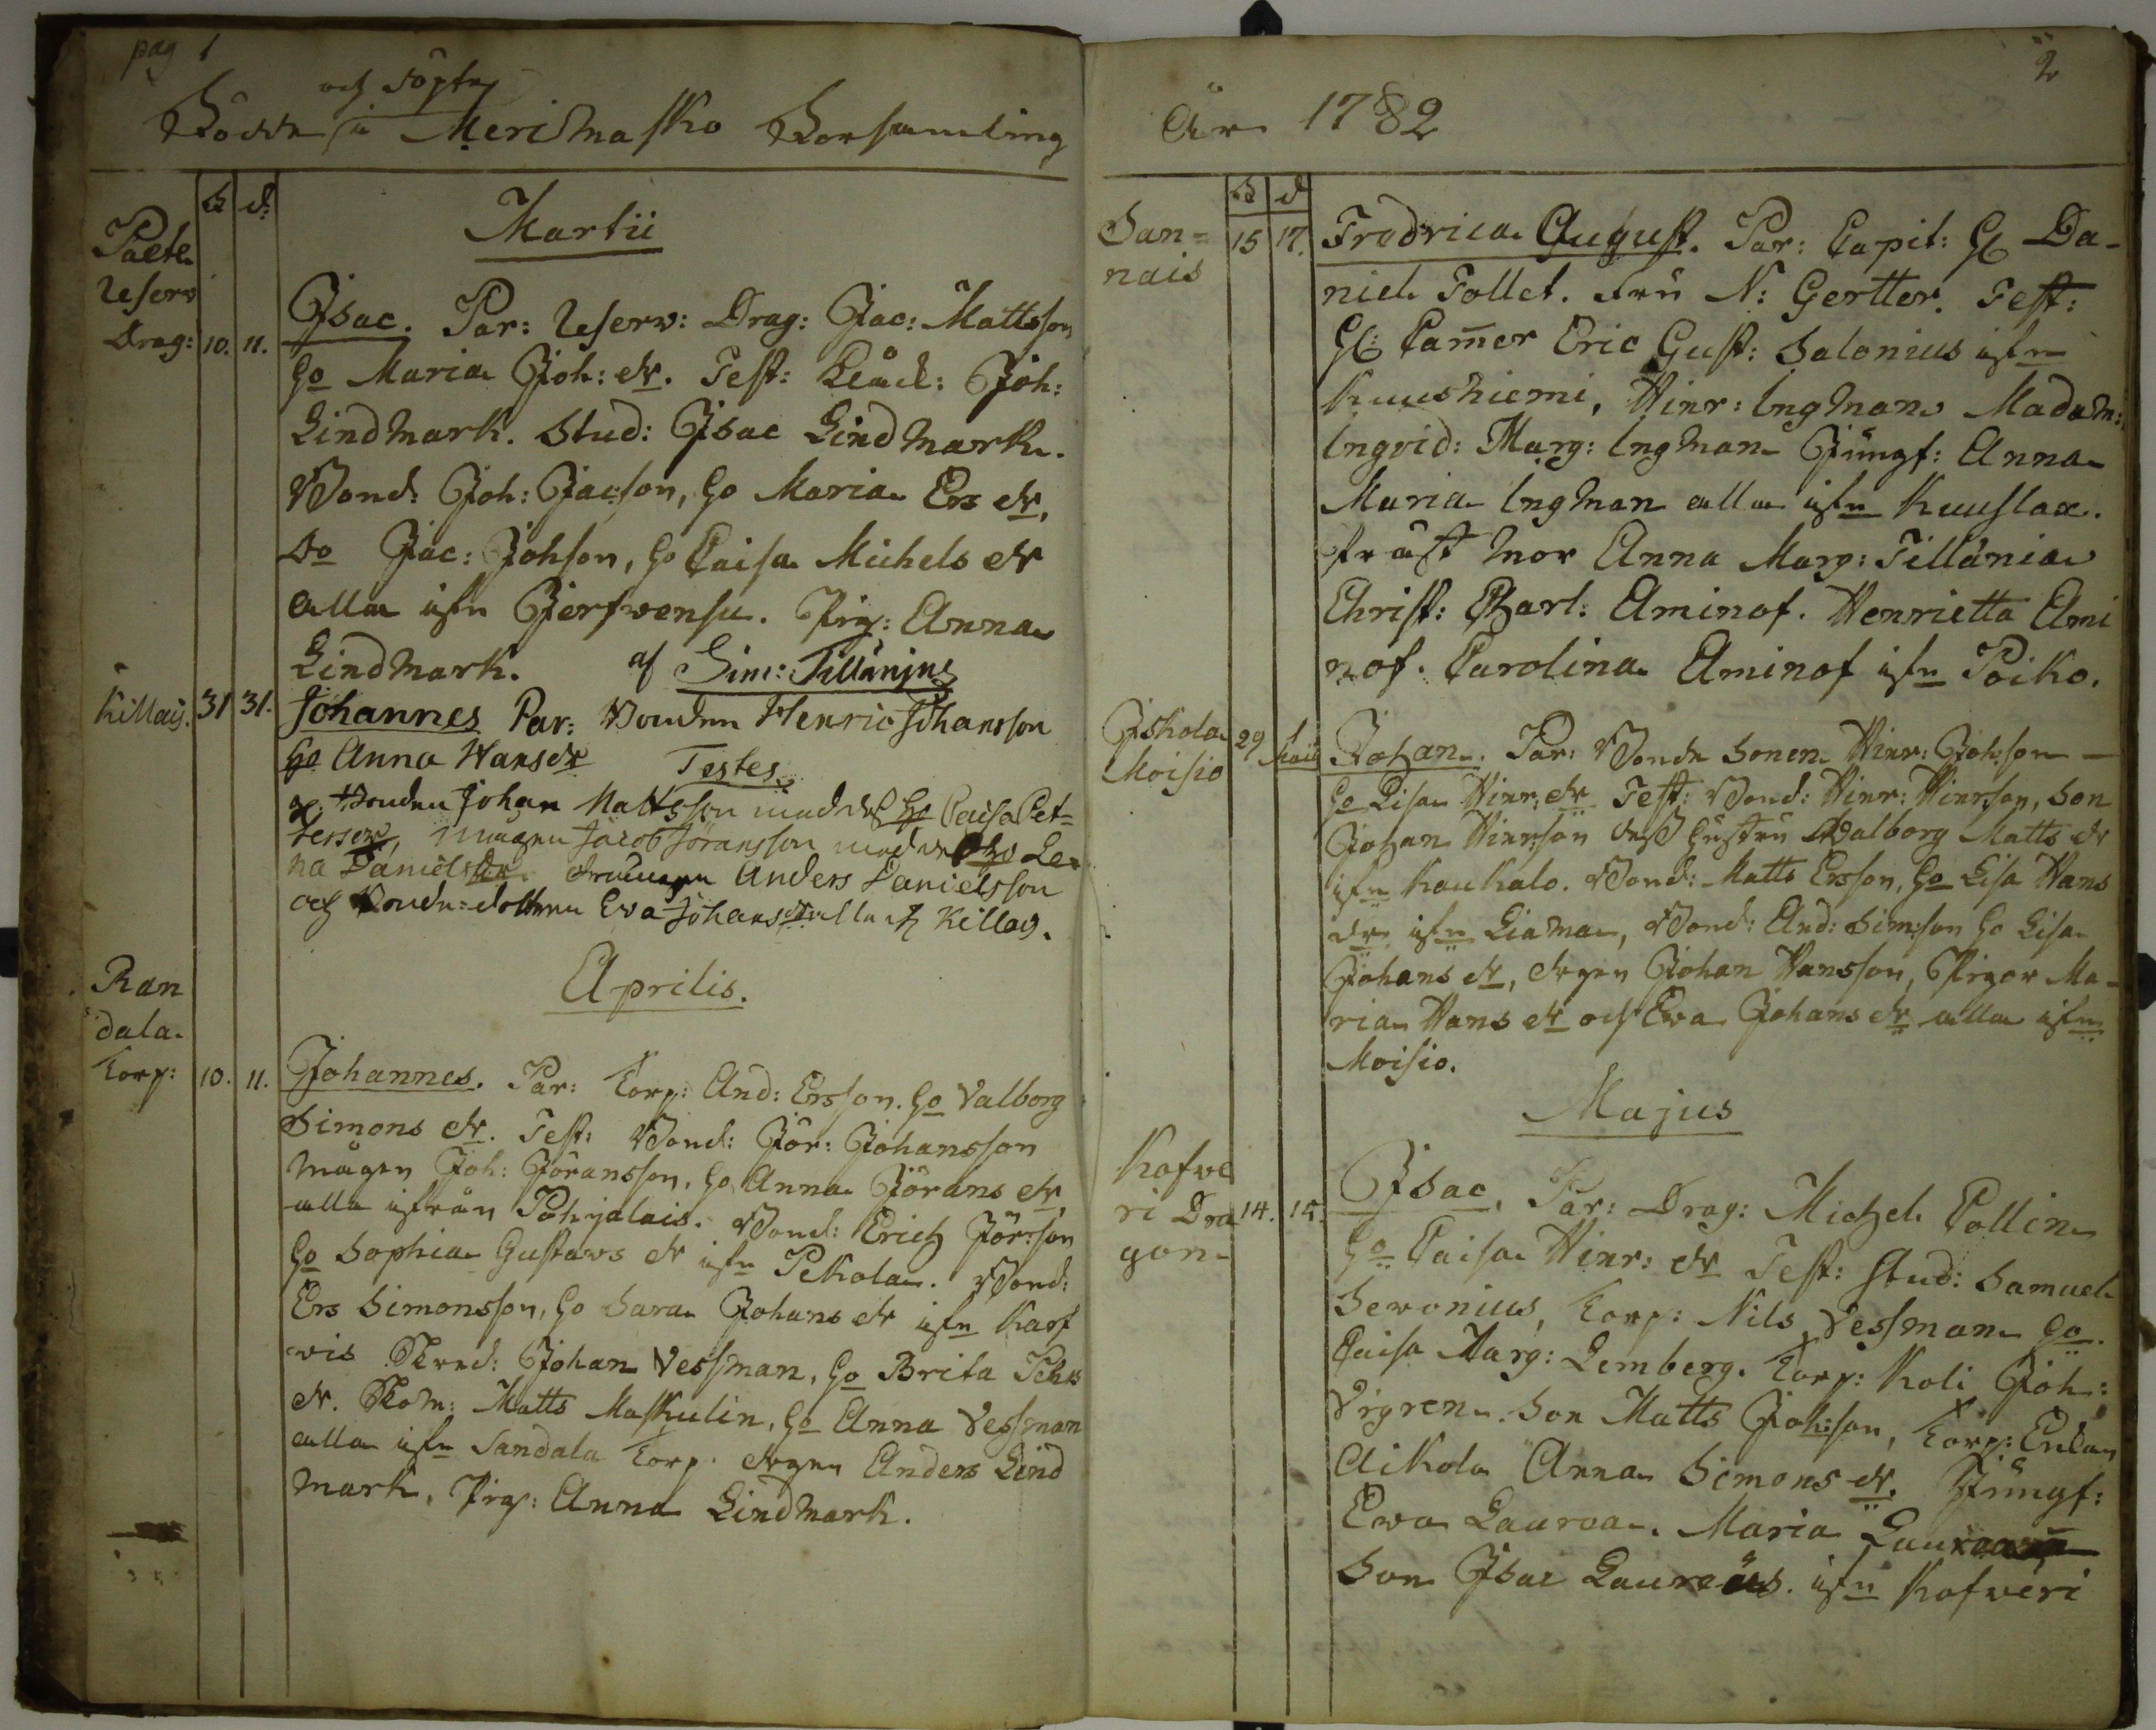 pag 1
och döpte
Födde i Merimasko Församling
f d:
Martii
Paete
Reserv
Drag: 10. 11.
Isac. Par: Reserv: Drag: Jac: Mattsson
Ho Maria Joh: dr. Test: Joh:
Lindmark. Stud: Isac Lindmark.
Bond: Joh: Jacson, Ho Maria Ers dr,
Do Jac: Johson, Ho Caisa Michels dr
alla ifrn Jerfvensu. Pig: Anna
Lindmark. af Sim: Tillänius
Killais. 31 31.
Johannes Par: Bonden Henric Johansson
Ho Anna Hansdr Testes
Bonden Johan Mattsson med des Ho Caisa Pet=
tersdr, mågen Jacob Jöransson med des Ho Le=
na Danielsdr. Drängen Anders Danielsson
och Bonde=dottren Eva Johansdr alla fr Killais.
Aprilis.
Ran
dala
Torp: 10. 11.
Johannes. Par: Torp: And: Ersson. Ho Valborg
Simons dr. Test: Bond: Jör: Johansson
mågen Joh: Jöransson, Ho Anna Jörans dr,
alla ifrån Pohjalais. Bond: Erich Jörson
Ho Sophia Gustavs dr ifrn Pekola. Bond:
Ers Simonsson, Ho Sara Johans dr ifrn Karf
vis Johan Vessman, Ho Brita Pehrs
dr. Matts Maskulin, Ho Anna Vessman
alla ifrn Sandala Torp. drgen Anders Lind
mark, Pig: Anna Lindmark.
2
År 1782
f d
San=
nais 15 17.
Fredrica August. Par: Capit: H Da-
niel Tollet. Fru N: Gertter. Test:
H: Camer Eric Gust: Salonius ifrn
Kuusniemi, Hinr: Ingman Madam:
Ingrid: Marg: Ingman Jungf: Anna
Maria Ingman alla ifrn Kuuslax.
Prust mor Anna Marg: Tillänia
Christ: Charl: Aminof. Henrietta Ami
nof. Carolina Aminof ifrn Poiko.
Iskola
Moisio 29 Maii
Johan. Par: Bonde Sonen Hinr: Johson —
Ho Lisa Hinr: dr Test: Bond: Hinr: Hinrson, Son
Johan Hinrson des hustru Walborg Matts dr
ifrn Kaukalo. Bond: Matts Ersson, Ho Lisa Hans
dr ifrn Liama, Bond: And: Simson Ho Lisa
Johans dr, drgen Johan Hansson, Pigor Ma-
ria Hans dr och Eva Johans dr alla ifrn
Moisio.
Majus
Kofve
ri Dra
gon 14. 15.
Isac, Par: Drag: Michel Collin
Ho Caisa Hinr: dr Test: Stud: Samuel
Sevonius, Torp: Nils Vessman Ho.
Caisa Marg: Lemberg. Torp: Koli Joh:
Vigren. Son Matts Johson, Torp: Enka
Aikola Anna Simons dr. Jungf:
Eva Laurea. Maria Laurea
Son Isac Laureus. ifrn Kofveri